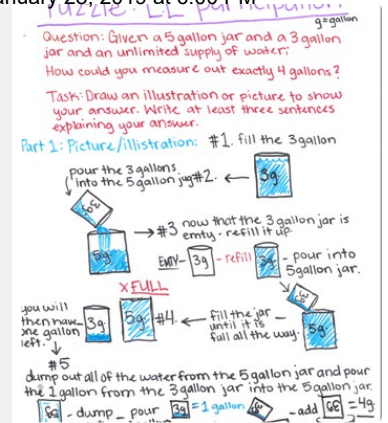 January 28, 2019 at 6:00 PM
Puzzle: EL participation
g=gallon
Question: Given a 5 gallon jar and a 3 gallon
jar and an unlimited supply of water;
How could you measure out exactly 4 gallons?
Task: Draw an illustration or picture to show
your answer. Write at least three sentences
explaining your answer.
Part 1: Picture/illistration: #1. fill the 3gallon
pour the 3 gallons
into the 5 gallon jug #2. ← 3g
3g
→ #3 now that the 3 gallon jar is
emty - refill it up.
5g
EMTY- 3g - refill 3g - pour into
5gallon jar.
x FULL
3g
you will
then have
one gallon
left. ↓
3g 5g #4. ← fill the jar
until it is
full all the way.
5g
#5
dump out all of the water from the 5 gallon jar and pour
the 1 gallon from the 3 gallon jar into the 5 gallon jar.
- dump _ pour 3g = 1 gallon - add = 4g